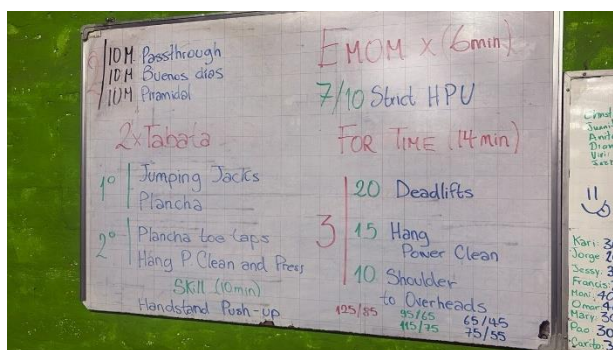 2
10M Passthrough
10M Buenos dias
10M Piramidal
2xTabata
1º
Jumping Jacks
Plancha
2º
Plancha toe taps
Hang P. Clean and Press
Skill (10min)
Handstand Push-up
EMOM x (6min)
7/10 Strict HPU
FOR TIME (14min)
3
20 Deadlifts
15 Hang
Power Clean
10 Shoulder
to Overheads
125/85
95/65
115/75
65/45
75/55
Kari:
Jorge
Jessy:
Francis:
Omar
Mary:
Pao: